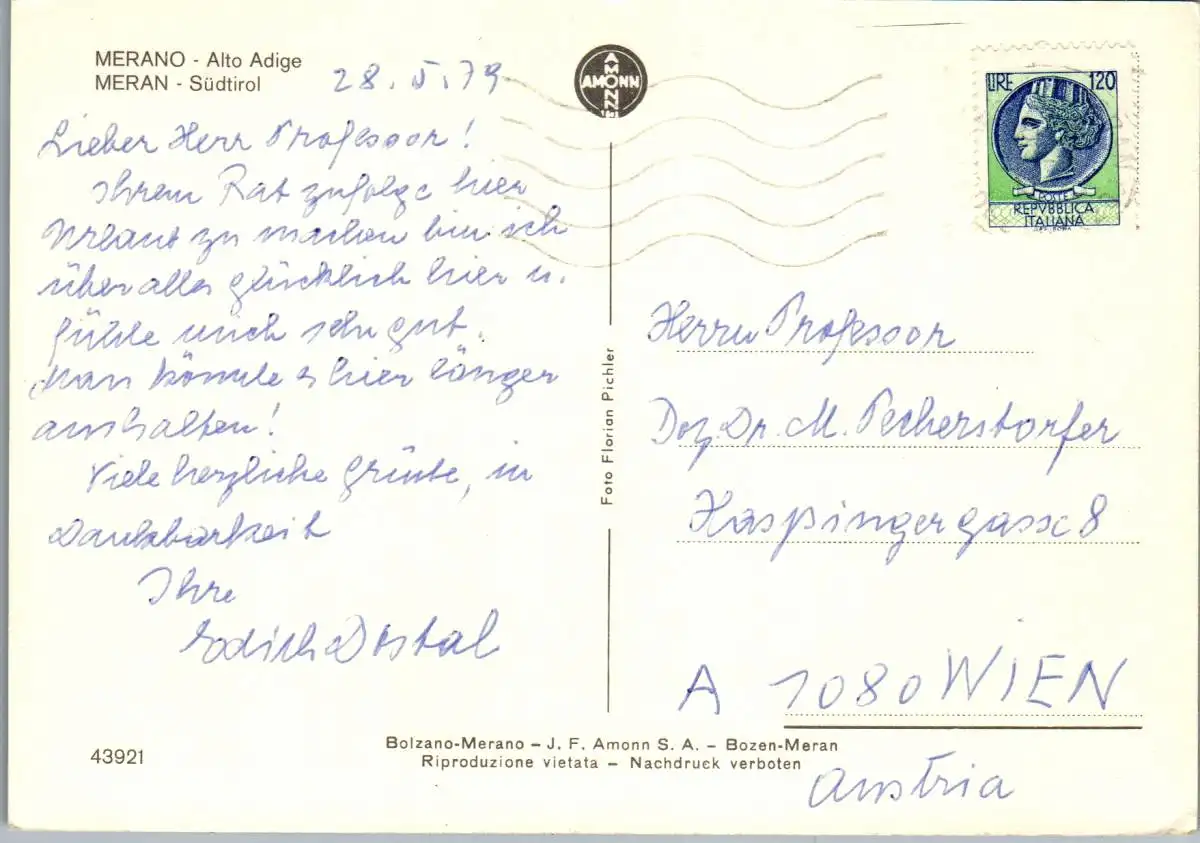 MERANO - Alto Adige
MERAN - Südtirol
28.5.79
AMONN
AMONN
Lieber Herr Professor!
Ihrem Rat zufolge hier
Urlaub zu machen bin ich
über alles glücklich hier u.
fühle mich sehr gut.
Man könnte es hier länger
aushalten!
Viele herzliche Grüße, in
Dankbarkeit
Ihre
Edith Dostal
43921
Foto Florian Pichler
LIRE 120
POSTE
REPVBBLICA
ITALIANA
Herrn Professor
Doz. Dr. M. Pecherstorfer
Haspingergasse 8
A 1080 WIEN
Austria
Bolzano-Merano – J. F. Amonn S. A. – Bozen-Meran
Riproduzione vietata – Nachdruck verboten